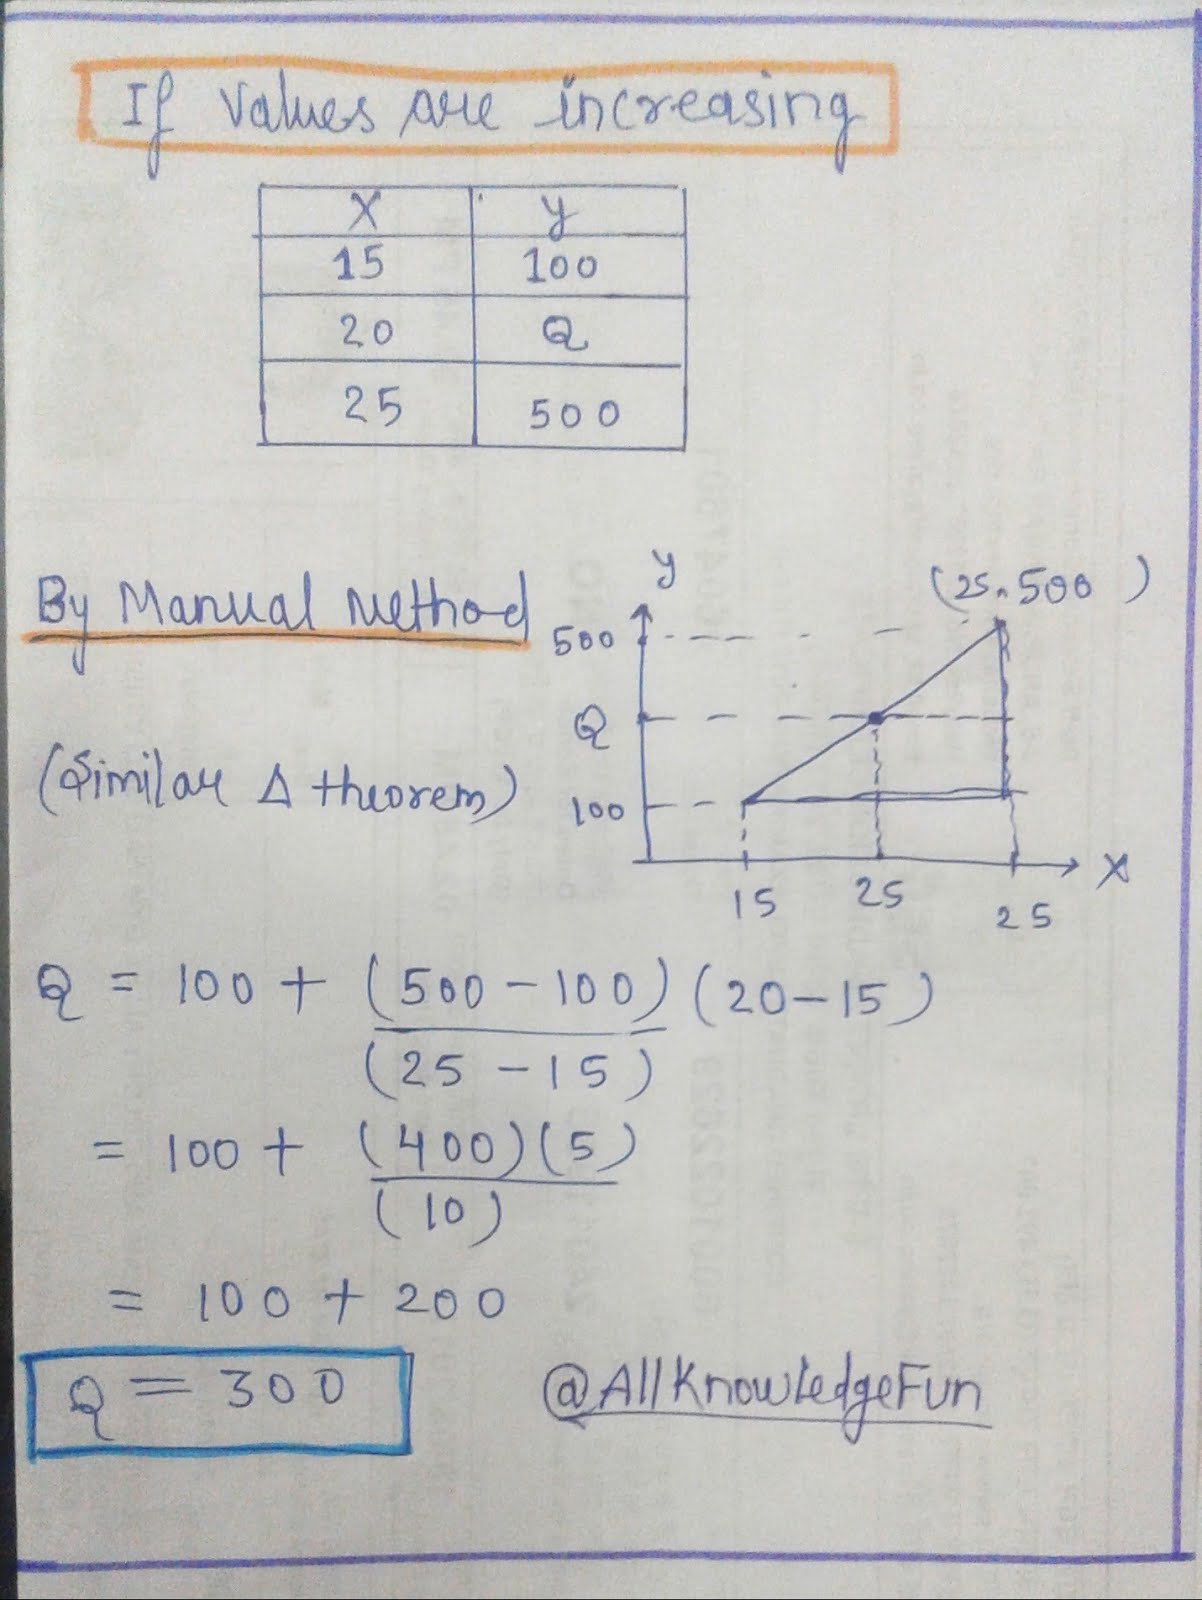 If values are increasing
X y
15 100
20 Q
25 500
By Manual Method
(Similar Δ theorem)
y
(25,500)
500
Q
100
15 25 25
X
Q = 100 + (500 - 100) (20-15)
(25 - 15)
= 100 + (400)(5)
(10)
= 100 + 200
Q = 300
@AllKnowledgeFun